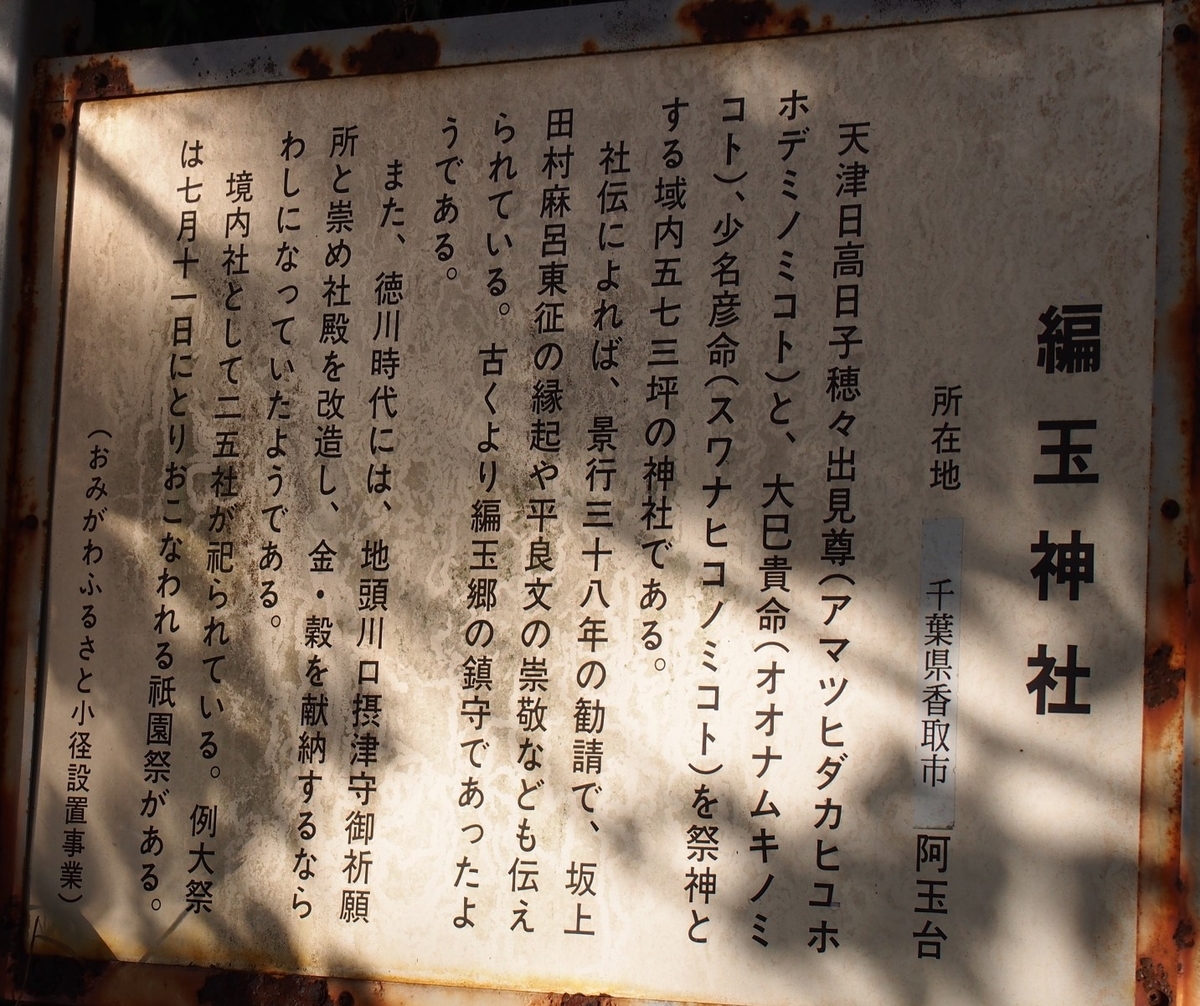 編玉神社
所在地 千葉県香取市 阿玉台
天津日高日子穂々出見尊(アマツヒダカヒコホ
ホデミノミコト)と、大巳貴命(オオナムキノミ
コト)、少名彦命(スワナヒコノミコト)を祭神と
する域内五七三坪の神社である。
社伝によれば、景行三十八年の勧請で、坂上
田村麻呂東征の縁起や平良文の崇敬なども伝え
られている。古くより編玉郷の鎮守であったよ
うである。
また、徳川時代には、地頭川口摂津守御祈願
所と崇め社殿を改造し、金・穀を献納するなら
わしになっていたようである。
境内社として二五社が祀られている。例大祭
は七月十一日にとりおこなわれる祇園祭がある。
(おみがわふるさと小径設置事業)